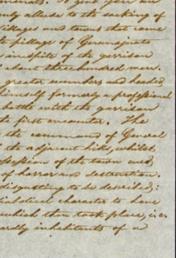 only allude to the sacking of
villages and towns that came
the pillage of
in despite of the garrison
three hundred men.
greater numbers and headed
himself formerly a professional
battle with the garrison
the first encounter. The
the command of General
the adjacent hills, whilst
possession of the town and
of horror and destruction
disgusting to be described:
character to have
which then took place, is
inhabitants of a